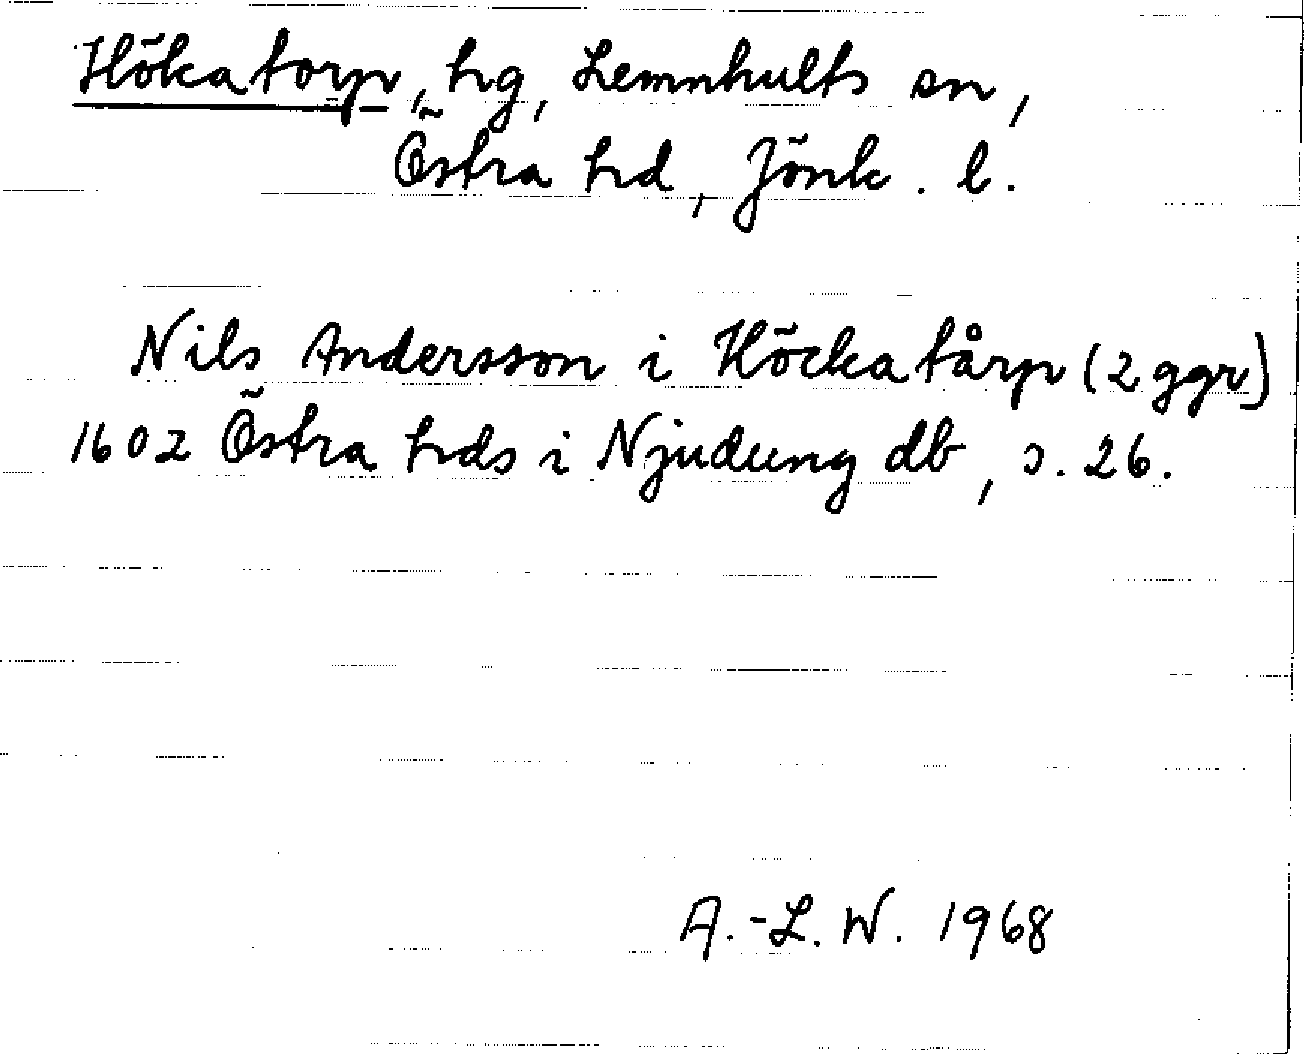 Hökatorp, hg, Lemnhults sn,
Östra hd, Jönk. l.
Nils Andersson i Höckatårp (2 ggr)
1602 Östra hds i Njudung db, s. 26.
A.-L. W. 1968